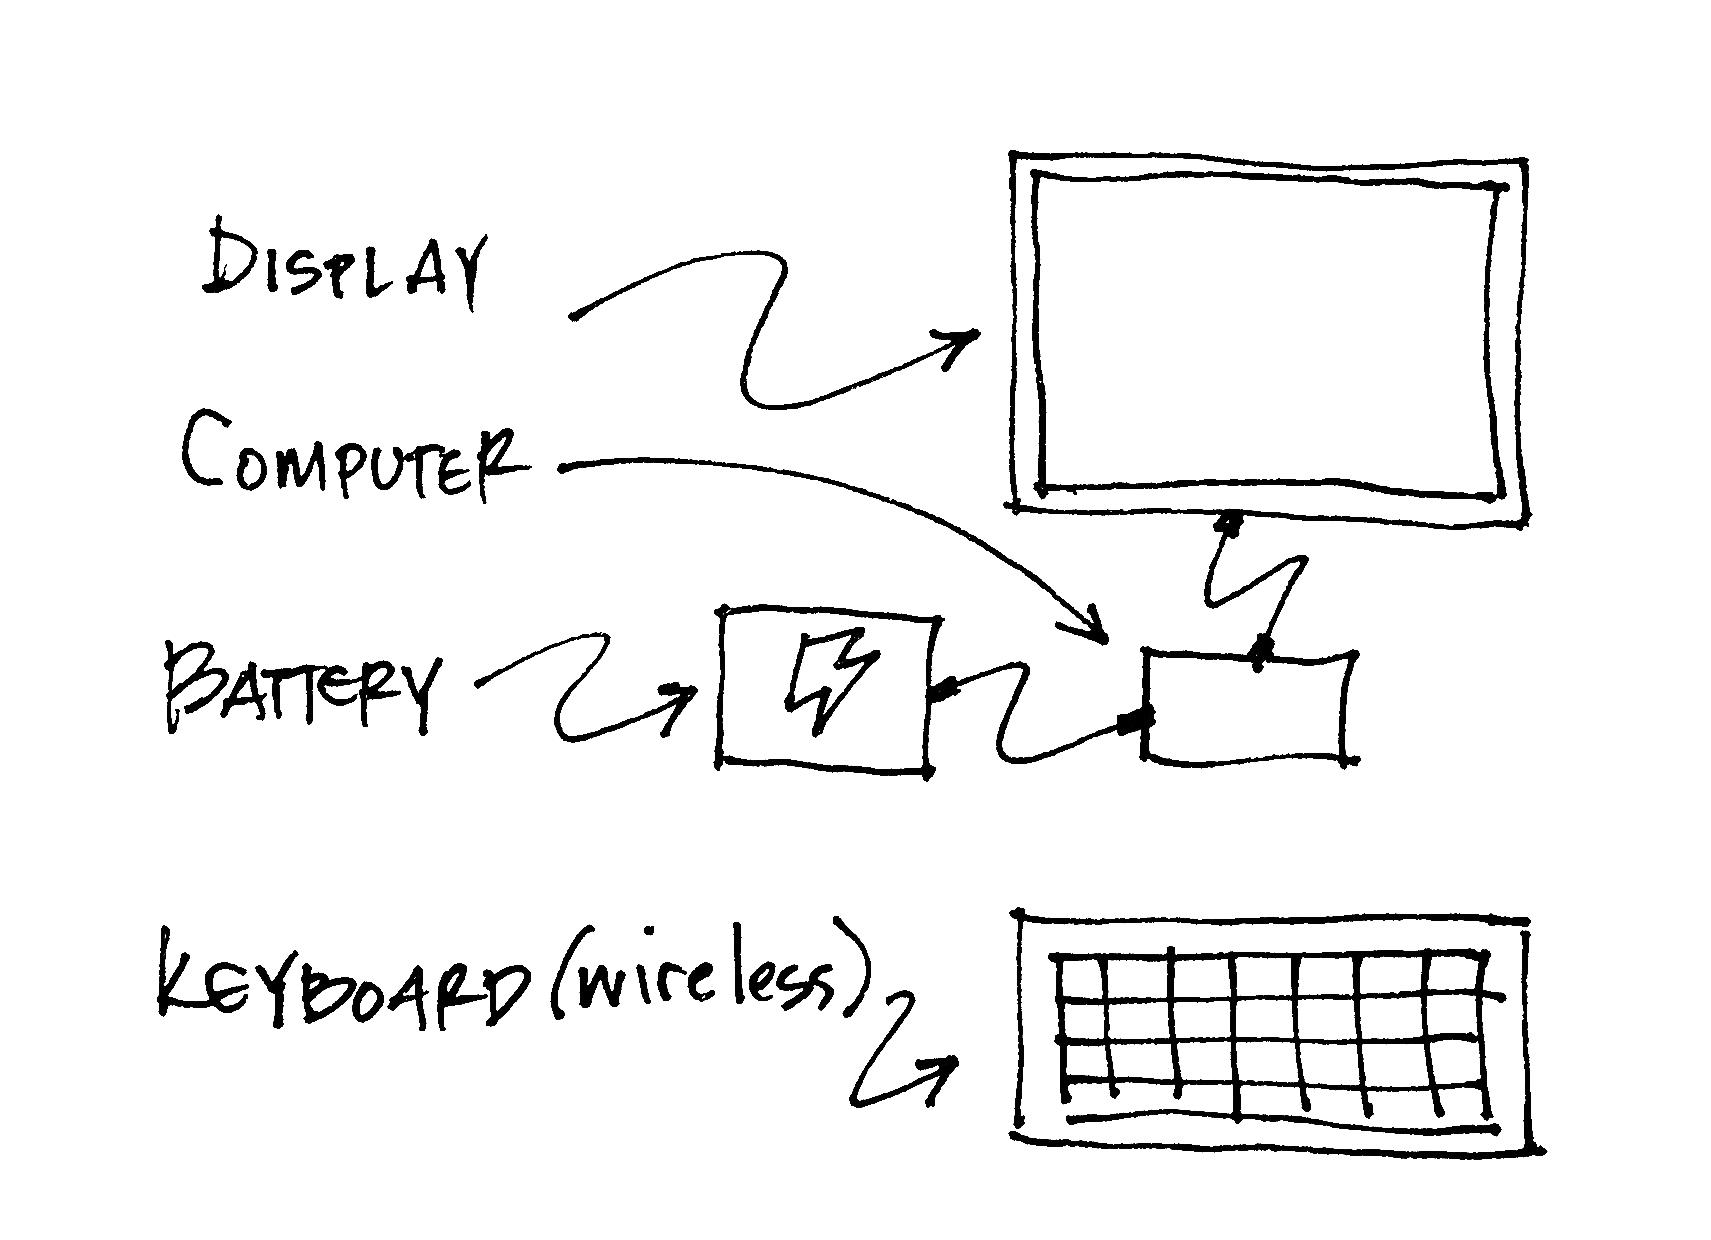 DISPLAY
COMPUTER
BATTERY
KEYBOARD (wireless)